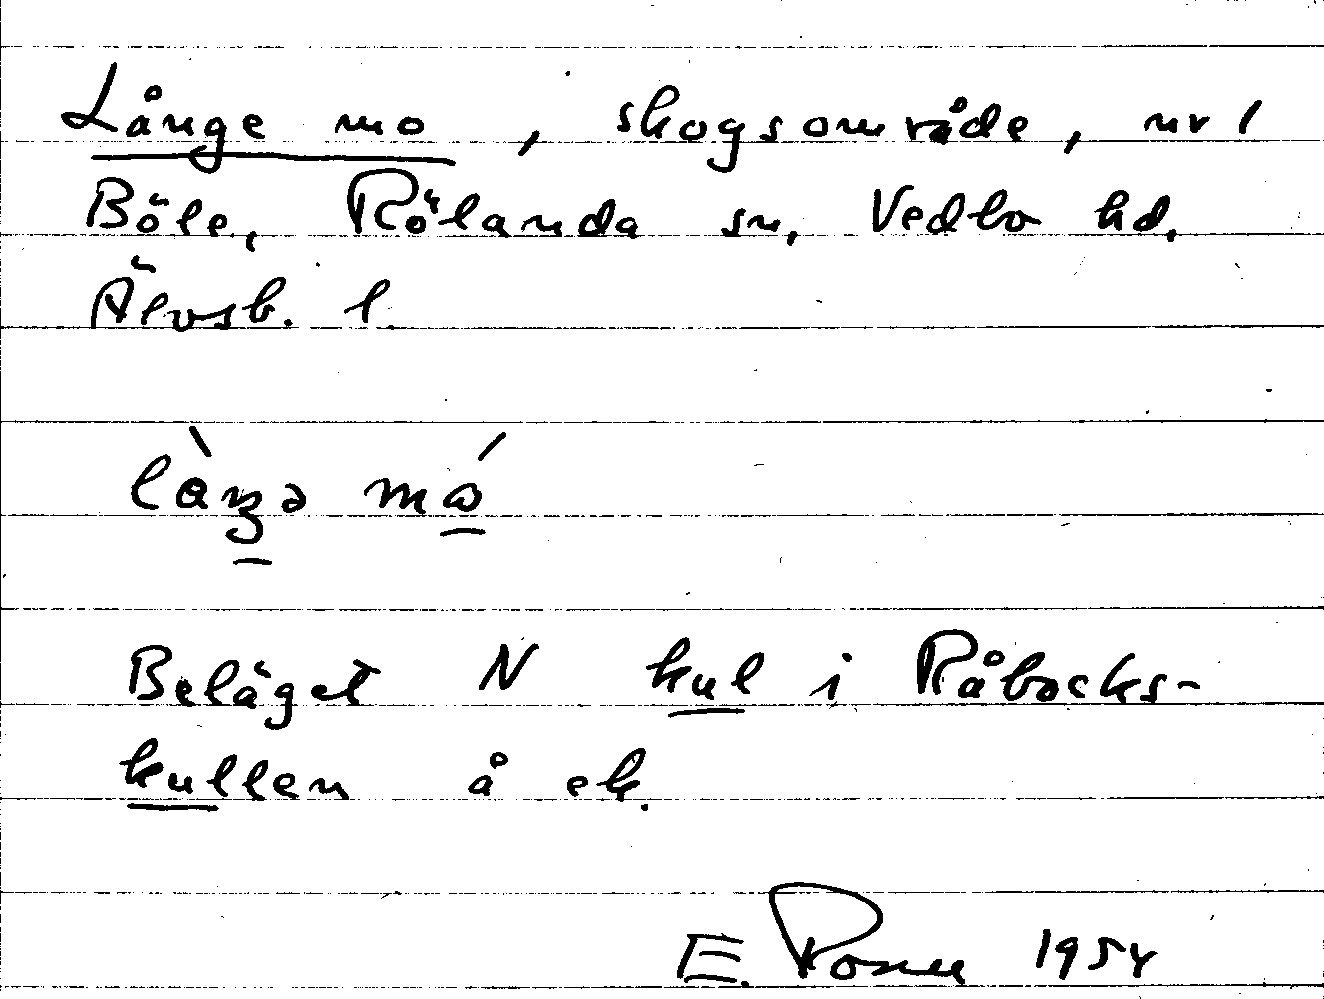 Långe mo, skogsområde, nr 1
Böle, Rölanda sn, Vedbo hd,
Älvsb. l.
Beläget N kul i Råbocks-
kullen å ek.
E. 1954